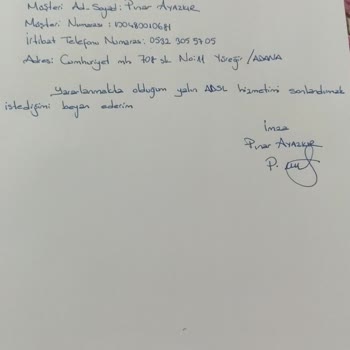 Müşteri Ad-Soyad: Pınar AYAZKUR
Müşteri Numarası: 100480010681
İrtibat Telefonu Numarası: 0532 305 5705
Adresi: Cumhuriyet mh 708 sk No:11 Yüreğir /ADANA
Yararlanmakta olduğum yalın ADSL hizmetini sonlandırmak
istediğimi beyan ederim
İmza
Pınar AYAZKUR
P.